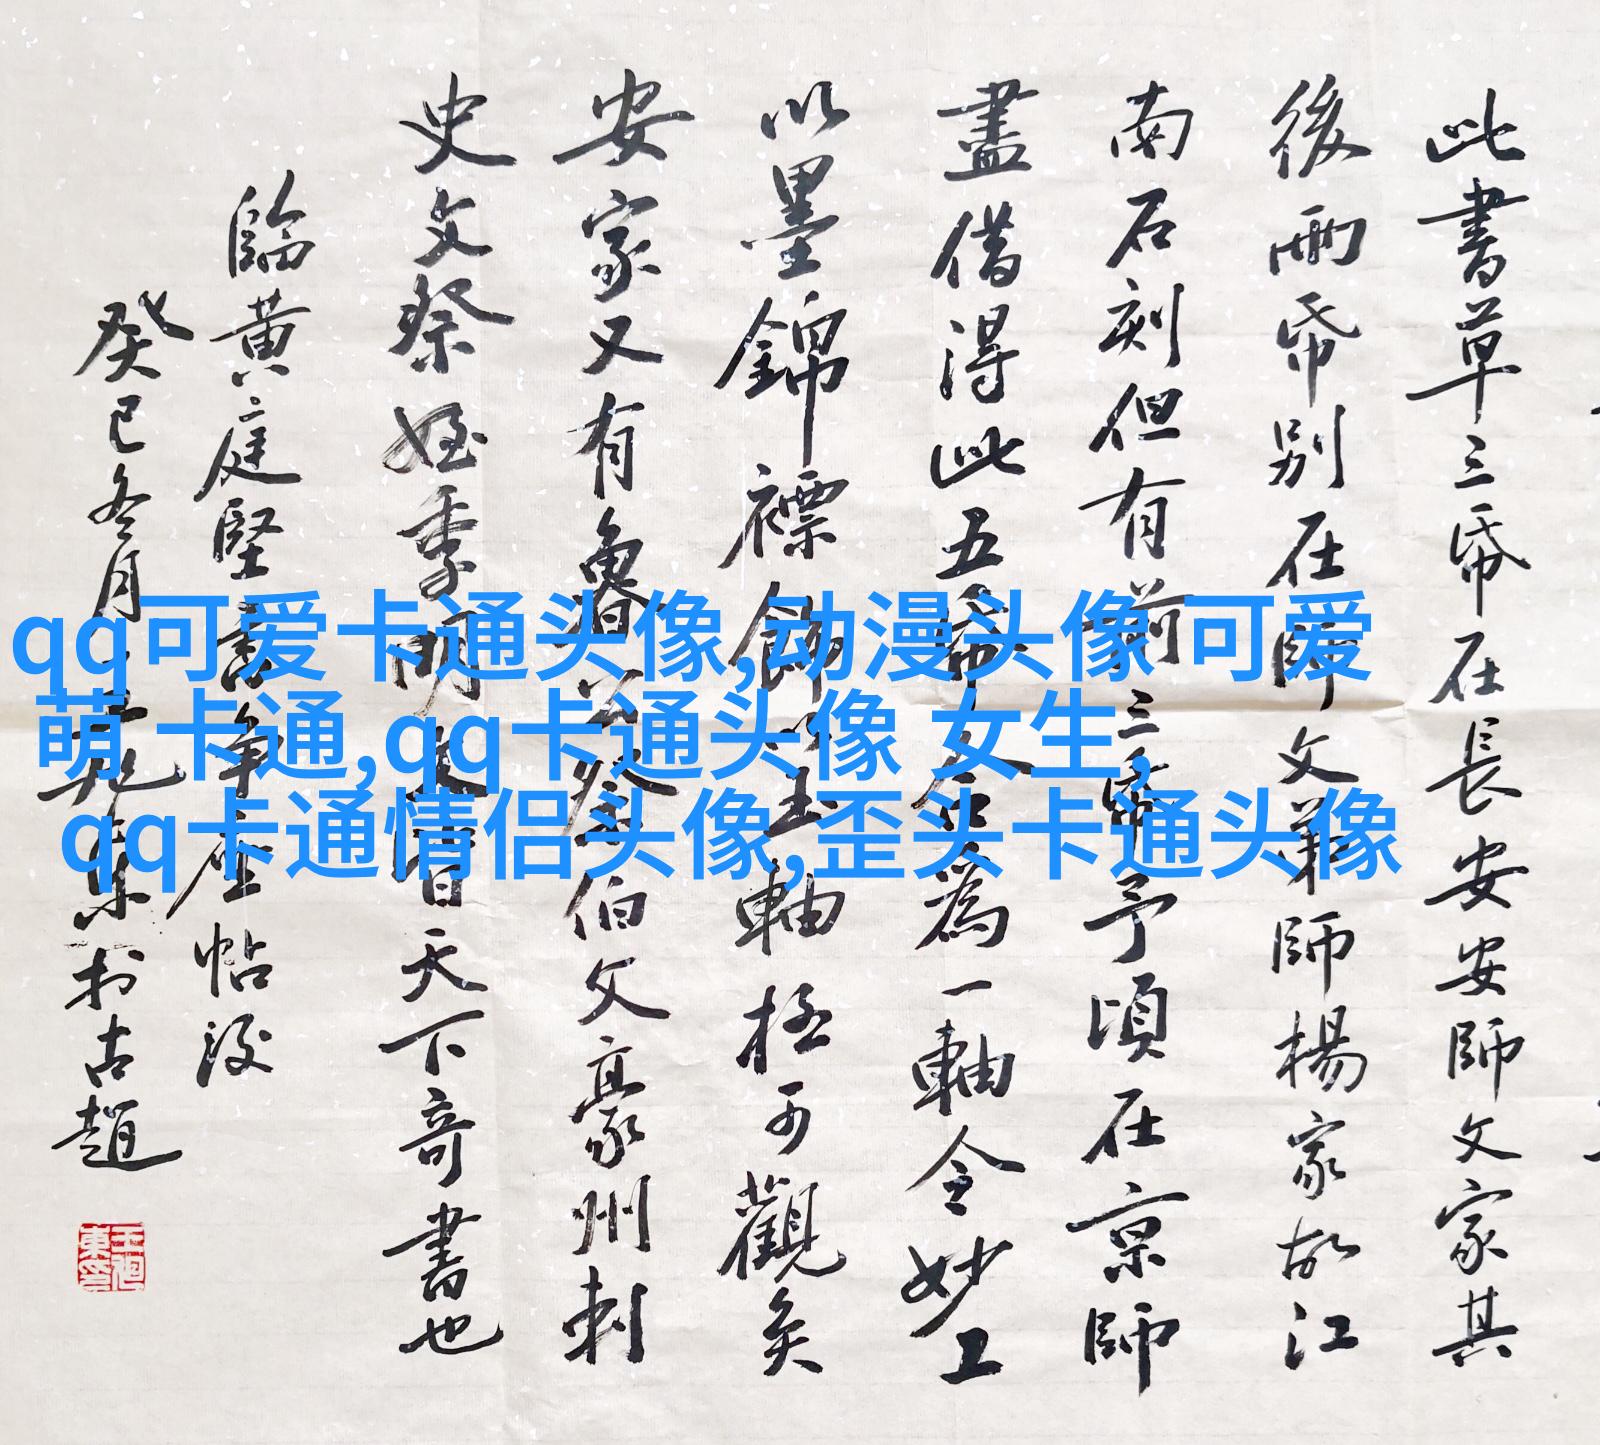 此書草三㡀在長安安師文家其
後兩㡀別在師文弟師楊家故江
南石刻但有前三㡀予頃在京師
盡借得此五㡀合為一軸令妙工
以墨錦褾飾玉軸極可觀矣
安家又有魯公祭伯父豪州刺
史文祭姪季明文皆天下奇書也
臨黃庭堅書爭座帖後
癸巳冬月王
東於古趙
qq可爱卡通头像,动漫头像 可爱
萌 卡通,qq卡通头像 女生,
qq卡通情侣头像,歪头卡通头像